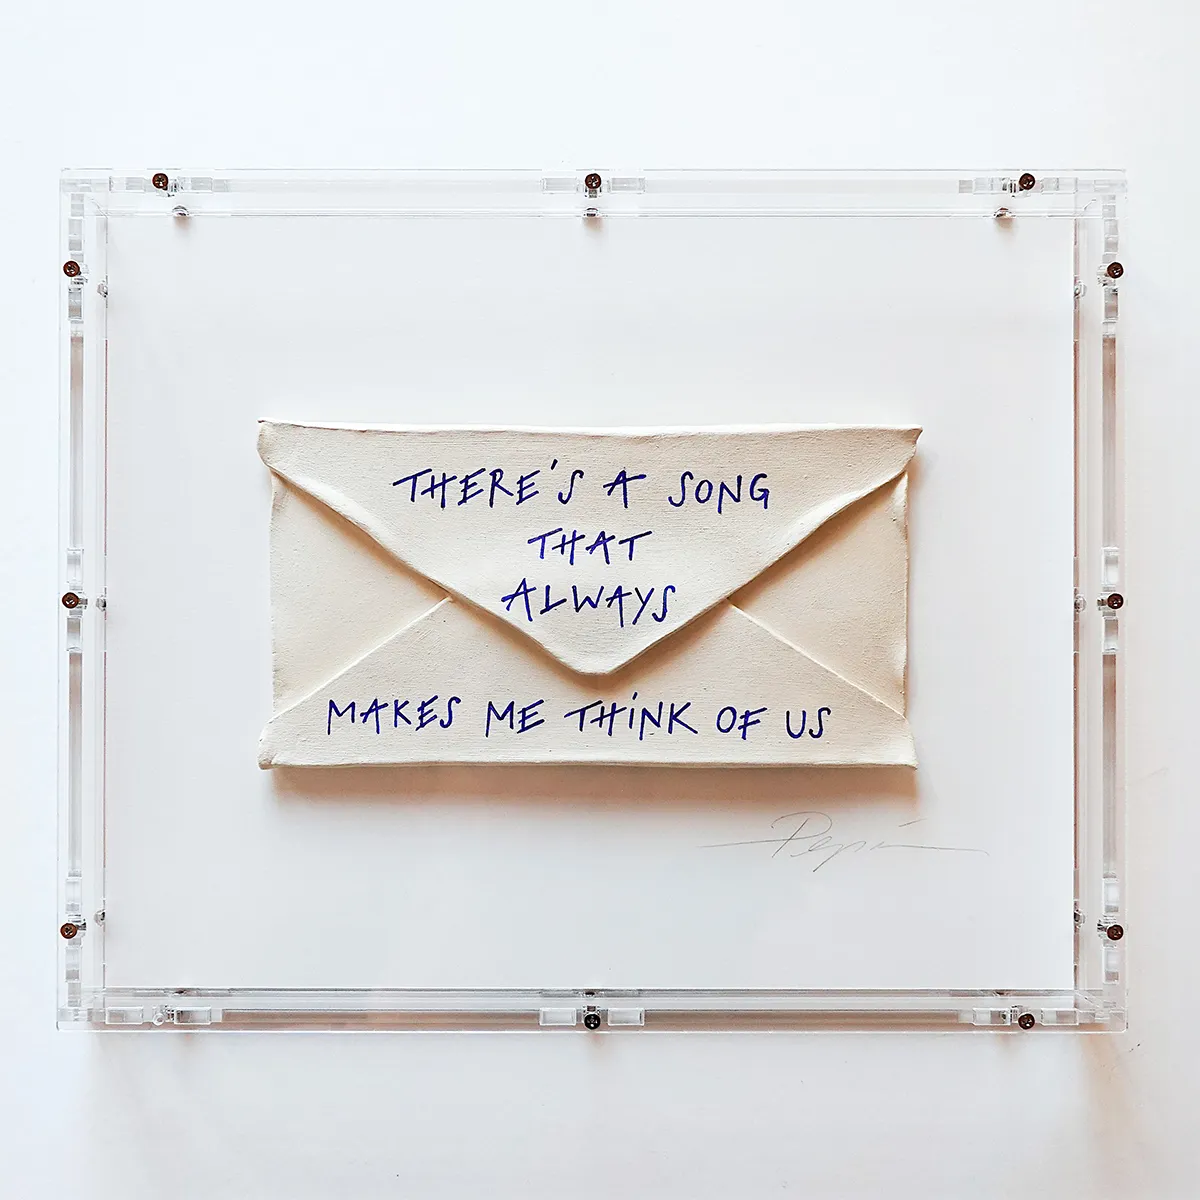 THERE'S A SONG
THAT
ALWAYS
MAKES ME THiNK OF US